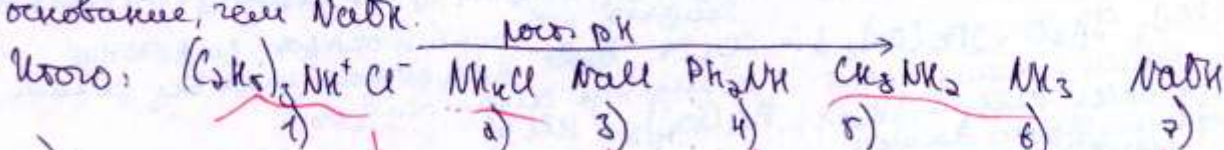 основание, чем NaOH.
рост pH
Итого: (C₂H₅)₃NH⁺Cl⁻ NH₄Cl NaCl Ph₂NH CH₃NH₂ NH₃ NaOH
1) 2) 3) 4) 5) 6) 7)